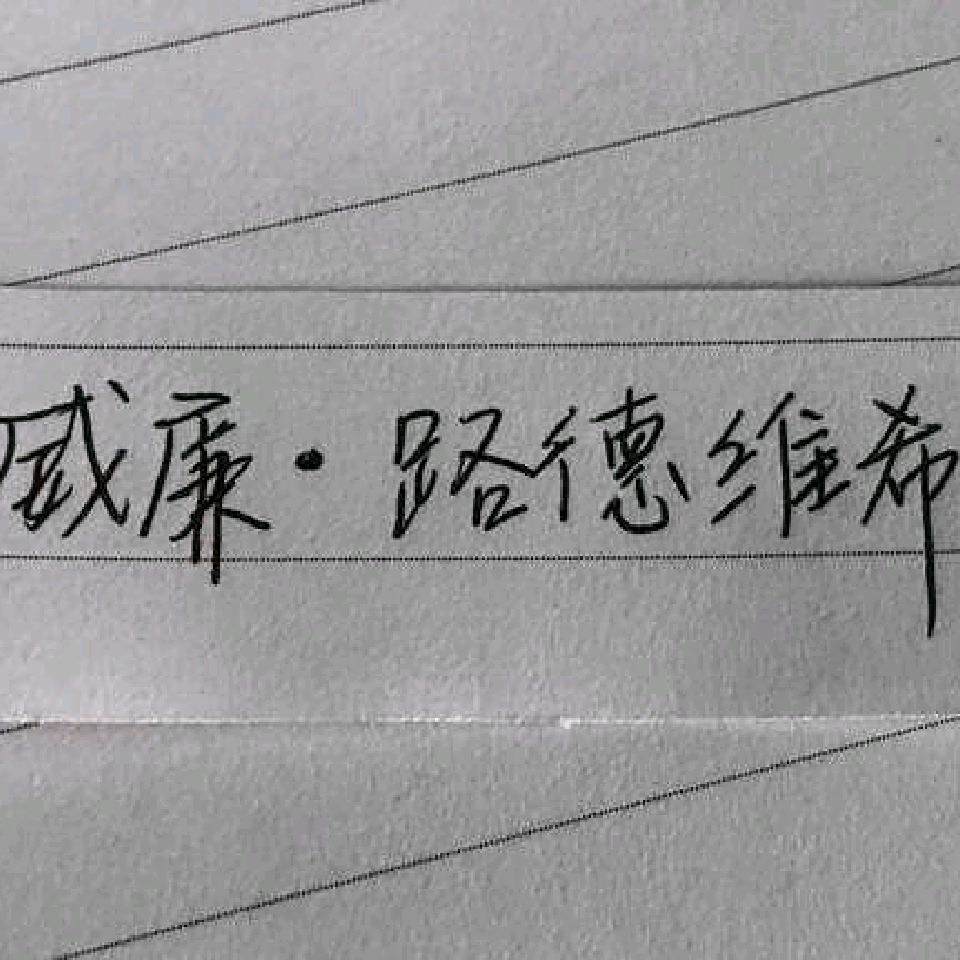 威廉·路德维希